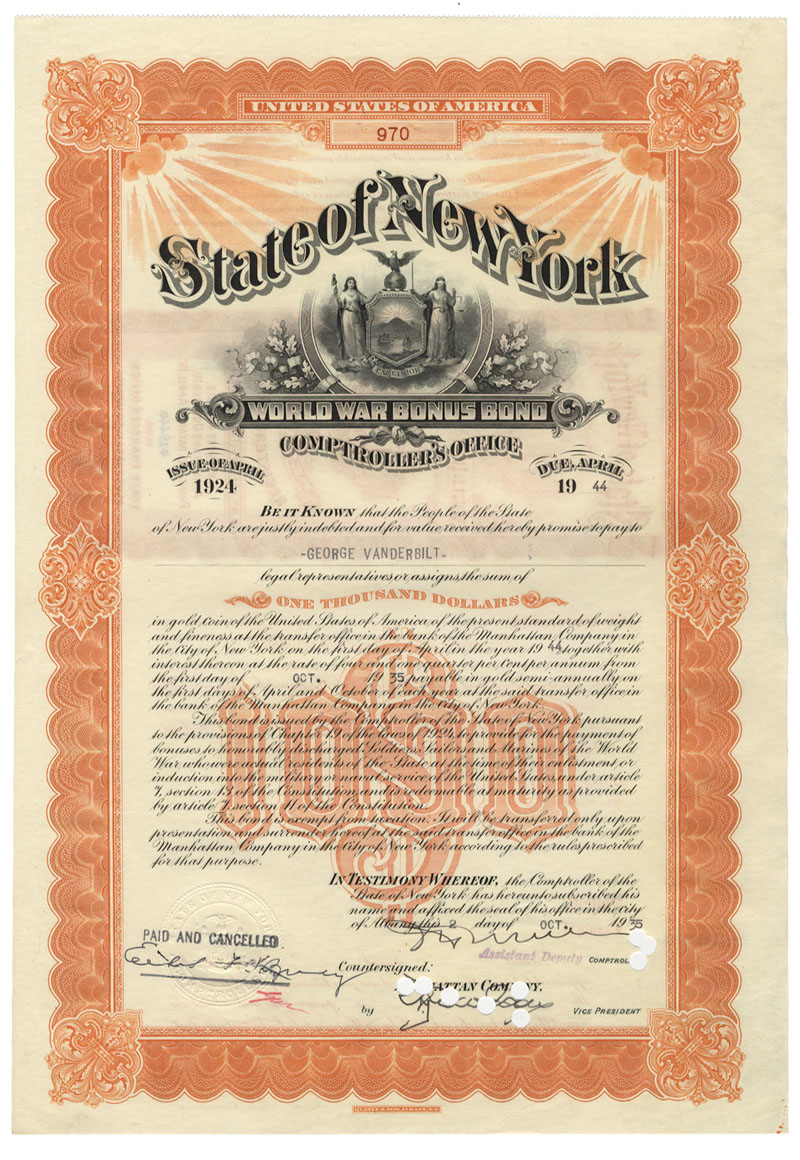 UNITED STATES OF AMERICA
970
State of New York
EXCELSIOR
WORLD WAR BONUS BOND
COMPTROLLER'S OFFICE
ISSUE OF APRIL
1924
DUE, APRIL
19 44
BE IT KNOWN that the People of the State
of New York are justly indebted and for value received hereby promise to pay to
-GEORGE VANDERBILT-
legal representatives or assigns, the sum of
ONE THOUSAND DOLLARS
in gold coin of the United States of America, of the present standard of weight
and fineness at the transfer office in the bank of the Manhattan Company in
the City of New York on the first day of April in the year 19 44 together with
interest thereon at the rate of four and one quarter per cent per annum from
the first day of OCT. 19 35 payable in gold semi-annually on
the first days of April and October in each year at the said transfer office in
the bank of the Manhattan Company in the City of New York.
This bond is issued by the Comptroller of the State of New York pursuant
to the provisions of Chapter 19 of the Laws of 1924, providing the payment of
bonuses to honorably discharged Soldiers, Sailors and Marines of the World
War who were actual residents of the State at the time of their enlistment or
induction into the military or naval service of the United States, under article
7, section 13 of the Constitution and is redeemable at maturity as provided
by article 7, section 11 of the Constitution.
This bond is exempt from taxation. It will be transferred only upon
presentation and surrender hereof at the said transfer office in the bank of the
Manhattan Company in the City of New York according to the rules prescribed
for that purpose.
IN TESTIMONY WHEREOF, the Comptroller of the
State of New York has hereunto subscribed his
name and affixed the seal of his office in the city
of Albany this 2 day of OCT. 19 35
PAID AND CANCELLED
Assistant Deputy COMPTROL
Countersigned:
ATTAN COMPANY,
by VICE PRESIDENT